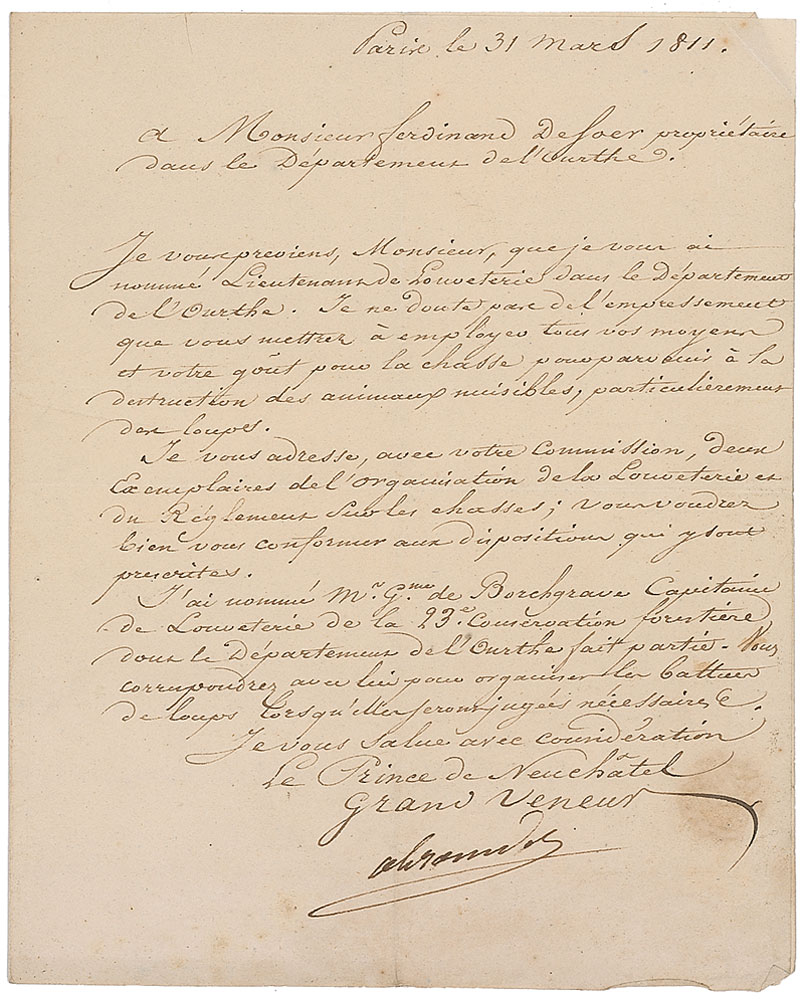 Paris le 31 Mars 1811.
A Monsieur ferdinand Desoer propriétaire
dans le Département de l'Ourthe.
Je vous previens, Monsieur, que je vous ai
nommé Lieutenant de Louveterie dans le Département
de l'Ourthe. Je ne doute pas de l'empressement
que vous mettrez à employer tous vos moyens
et votre goût pour la chasse pour parvenir à la
destruction des animaux nuisibles, particulièrement
des loups.
Je vous adresse, avec votre Commission, deux
Exemplaires de l'organisation de la Louveterie et
du Réglement Sur les chasses; vous voudrez
bien vous conformer aux dispositions qui y sont
prescrites.
J'ai nommé Mr. Gme. de Borchgrave Capitaine
de Louveterie de la 23e. Conservation forestière
dont le Département de l'Ourthe fait partie. Vous
correspondrez avec lui pour organiser les battues
de loups lorsqu'elles seront jugées nécessaires.
Je vous Salue avec considération
Le Prince de Neuchâtel
Grand Veneur